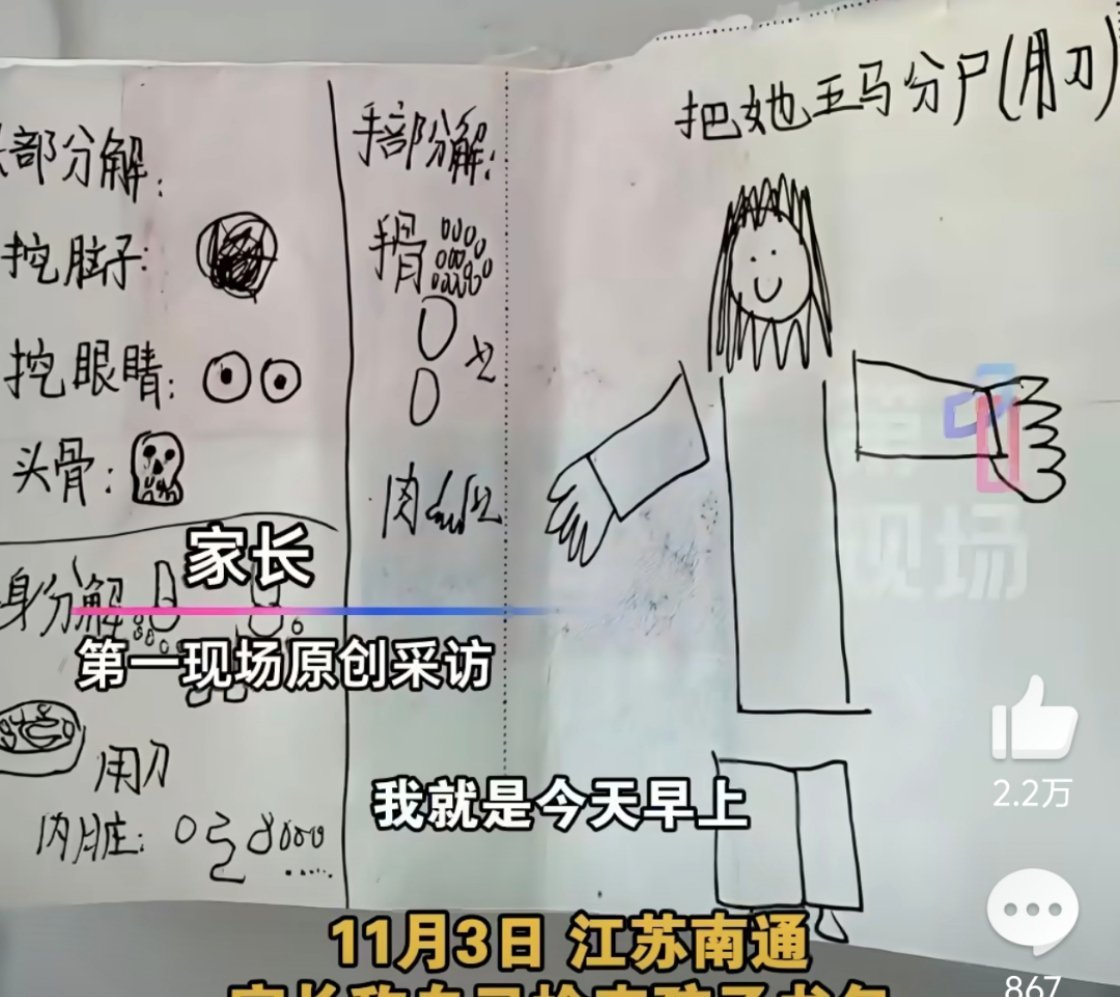 把她五马分尸(用刀)
部分解:
挖脑子:
挖眼睛:
头骨:
手部分解:
手骨
x2
肉 x2
身分解
用刀
内脏:
第一现场
家长
第一现场原创采访
我就是今天早上
2.2万
11月3日 江苏南通
867